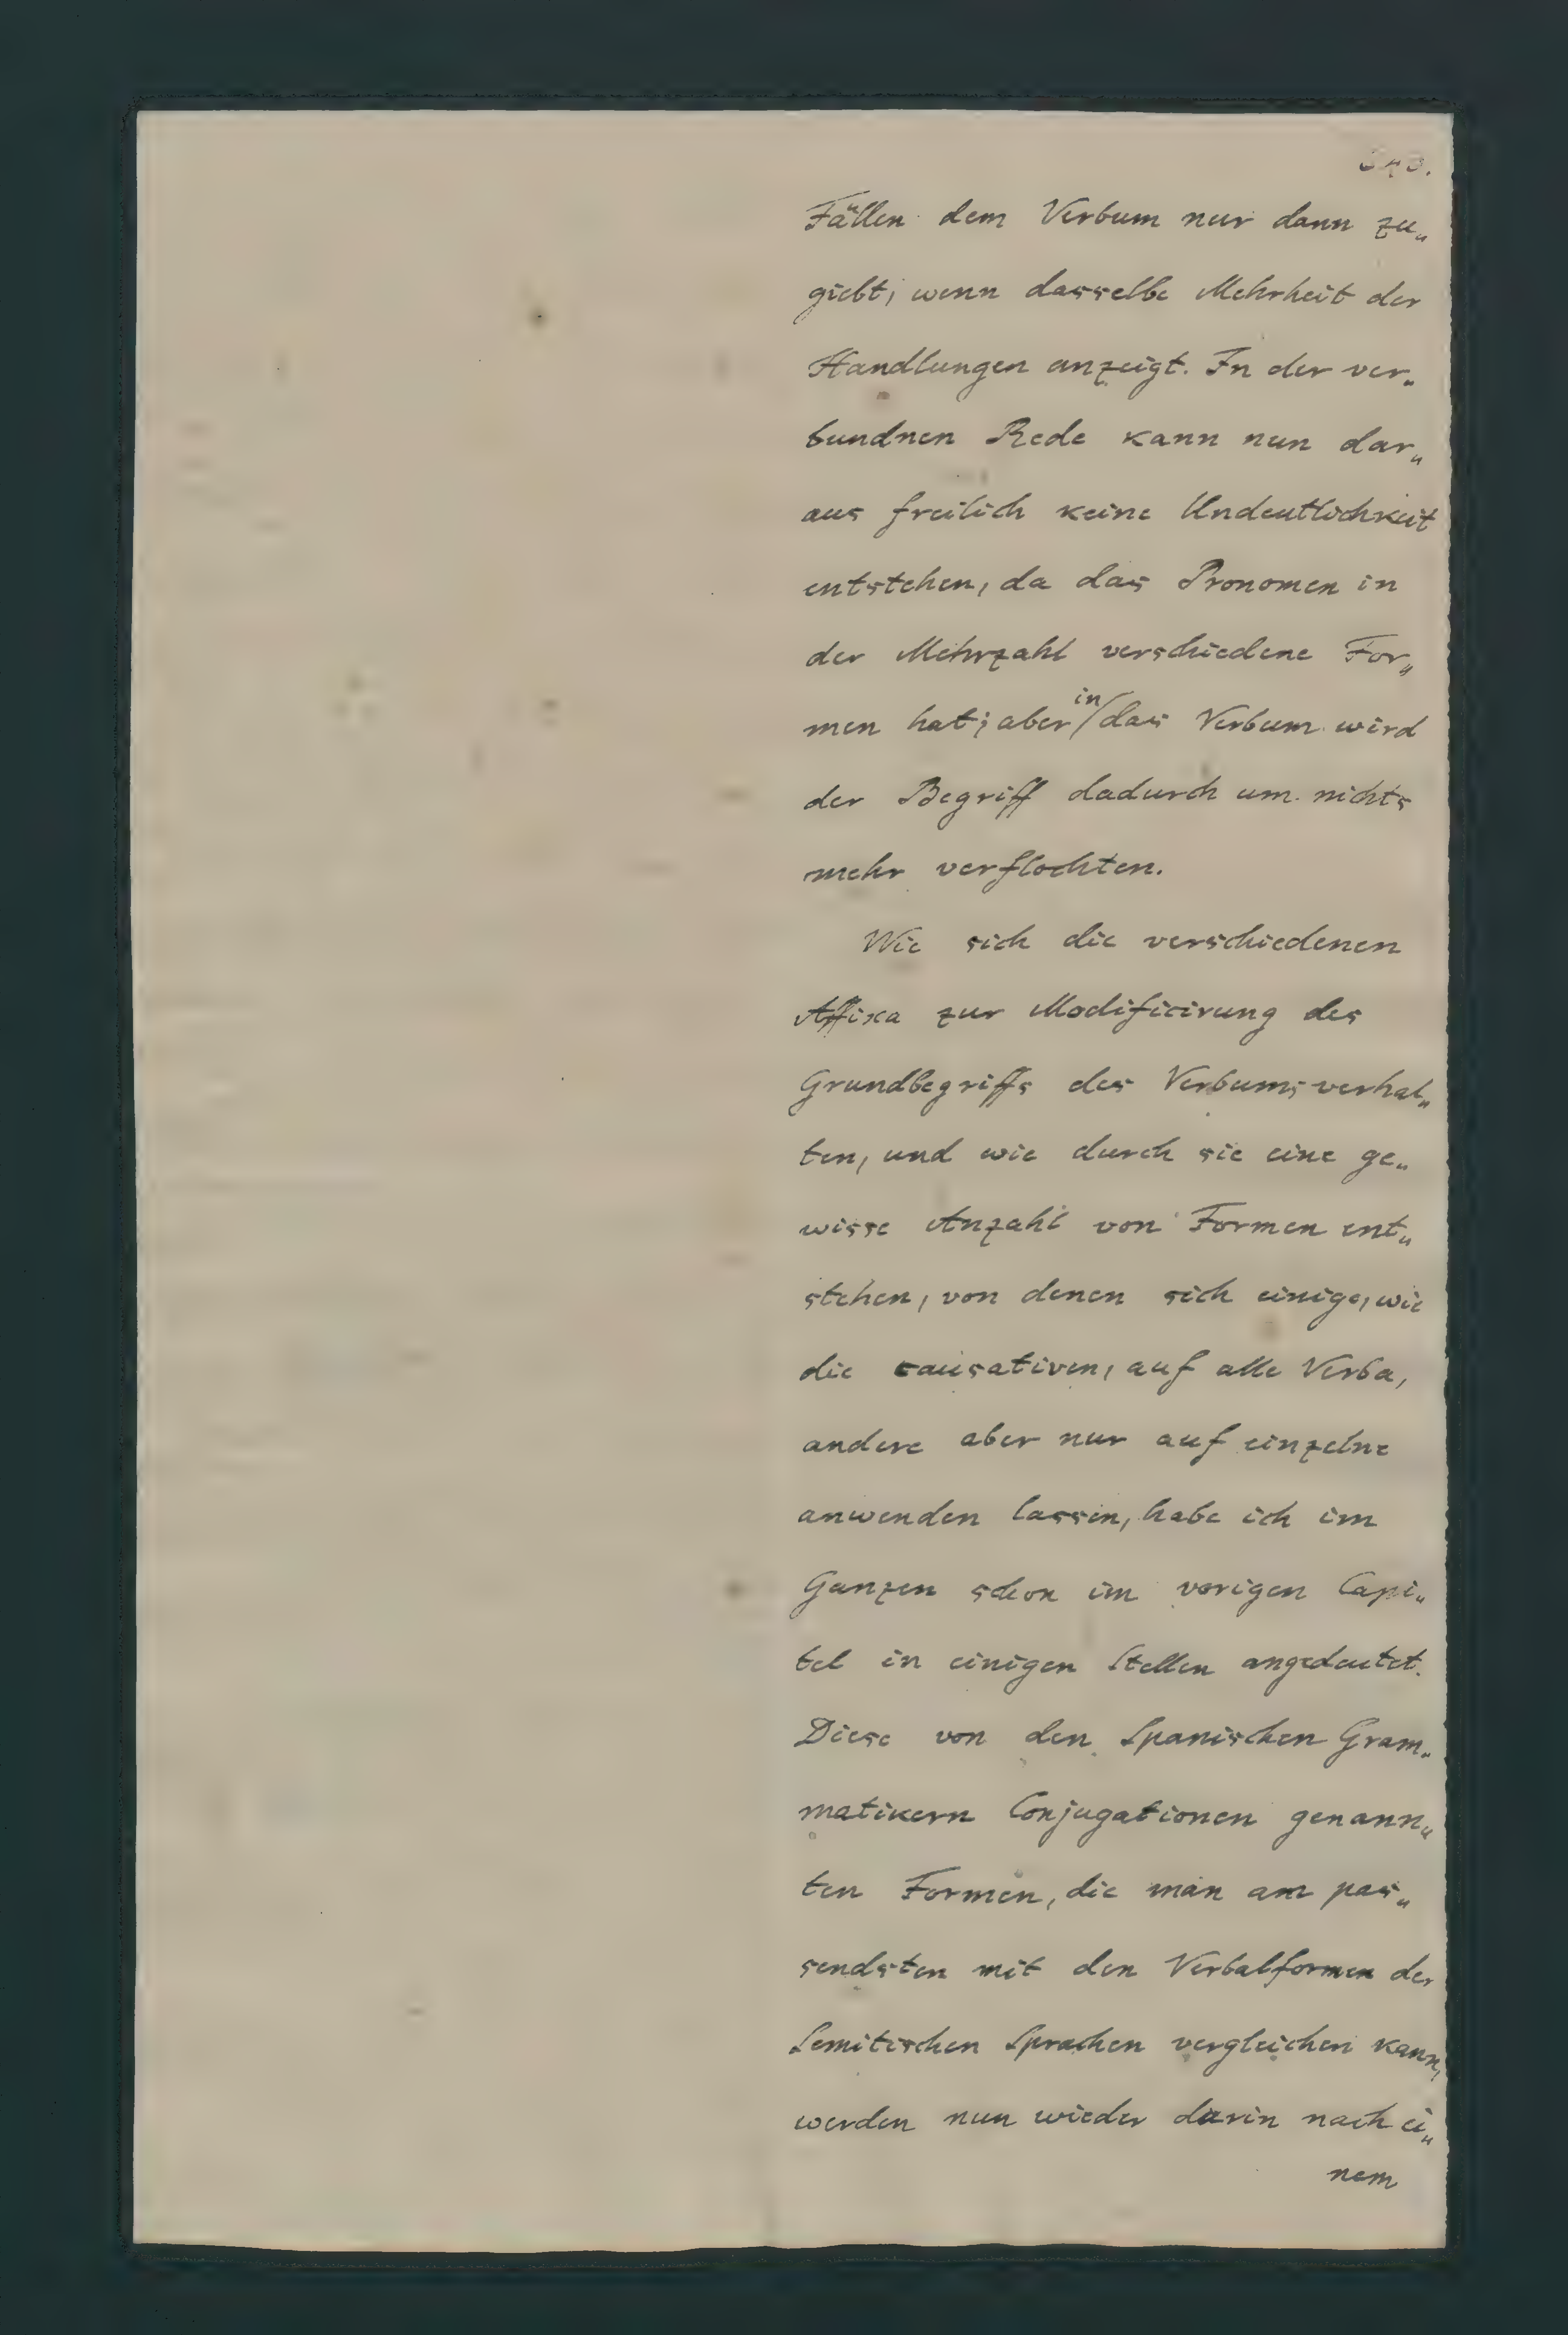 Fällen dem Verbum nur dann zu„
giebt, wenn dasselbe Mehrheit der
Handlungen anzeigt. In der ver„
bundnen Rede kann nun dar„
aus freilich keine Undeutlichkeit
entstehen, da das Pronomen in
der Mehrzahl verschiedene For„
men hat; aber in das Verbum wird
der Begriff dadurch um nichts
mehr verflochten.
Wie sich die verschiedenen
Affixa zur Modificirung des
Grundbegriffs des Verbums verhal„
ten, und wie durch sie eine ge„
wisse Anzahl von Formen ent„
stehen, von denen sich einige, wie
die causativen, auf alle Verba,
andere aber nur auf einzelne
anwenden lassen, habe ich im
Ganzen schon im vorigen Capi„
tel in einigen Stellen angedeutet.
Diese von den Spanischen Gram„
matikern Conjugationen genann„
ten Formen, die man am pas„
sendsten mit den Verbalformen der
Semitischen Sprachen vergleichen kann,
werden nun wieder darin nach ei„
nem